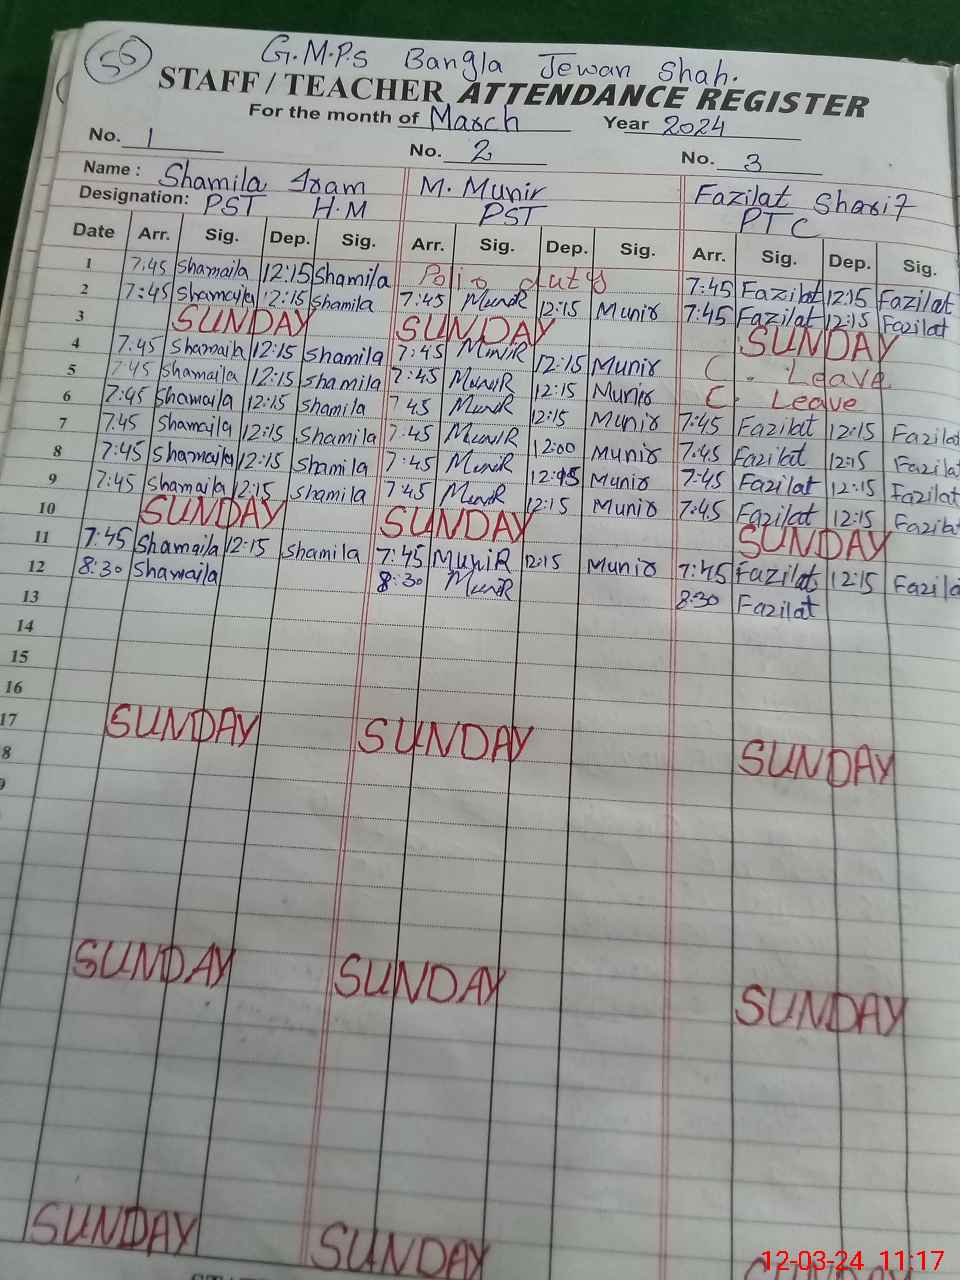 55
G.M.P.S Bangla Jewan Shah.
STAFF / TEACHER ATTENDANCE REGISTER
For the month of March Year 2024
No. 1 No. 2 No. 3
Name: Shamila Iram M. Munir Fazilat Sharif
Designation: PST H.M PST PTC
Date Arr. Sig. Dep. Sig. Arr. Sig. Dep. Sig. Arr. Sig. Dep. Sig.
1 7:45 Shamaila 12:15 Shamila Polio duty 7:45 Fazilat 12:15 Fazilat
2 7:45 Shamaila 12:15 Shamila 7:45 MuniR 12:15 Munir 7:45 Fazilat 12:15 Fazilat
3 SUNDAY SUNDAY SUNDAY
4 7:45 Shamaila 12:15 Shamila 7:45 MuniR 12:15 Munir C. Leave
5 7:45 Shamaila 12:15 Shamila 7:45 MuniR 12:15 Munir C. Leave
6 7:45 Shamaila 12:15 Shamila 7:45 MuniR 12:15 Munir 7:45 Fazilat 12:15 Fazilat
7 7:45 Shamaila 12:15 Shamila 7:45 MuniR 12:00 Munir 7:45 Fazilat 12:15 Fazilat
8 7:45 Shamaila 12:15 Shamila 7:45 MuniR Munir 7:45 Fazilat 12:15 Fazilat
9 7:45 Shamaila 12:15 Shamila 7:45 MuniR 12:15 Munir 7:45 Fazilat 12:15 Fazilat
10 SUNDAY SUNDAY SUNDAY
11 7:45 Shamaila 12:15 Shamila 7:45 MuniR 12:15 Munir 7:45 Fazilat 12:15 Fazila
12 8:30 Shamaila 8:30 MuniR 8:30 Fazilat
13
14
15
16
17 SUNDAY SUNDAY SUNDAY
8
9
SUNDAY SUNDAY SUNDAY
SUNDAY SUNDAY
12-03-24 11:17